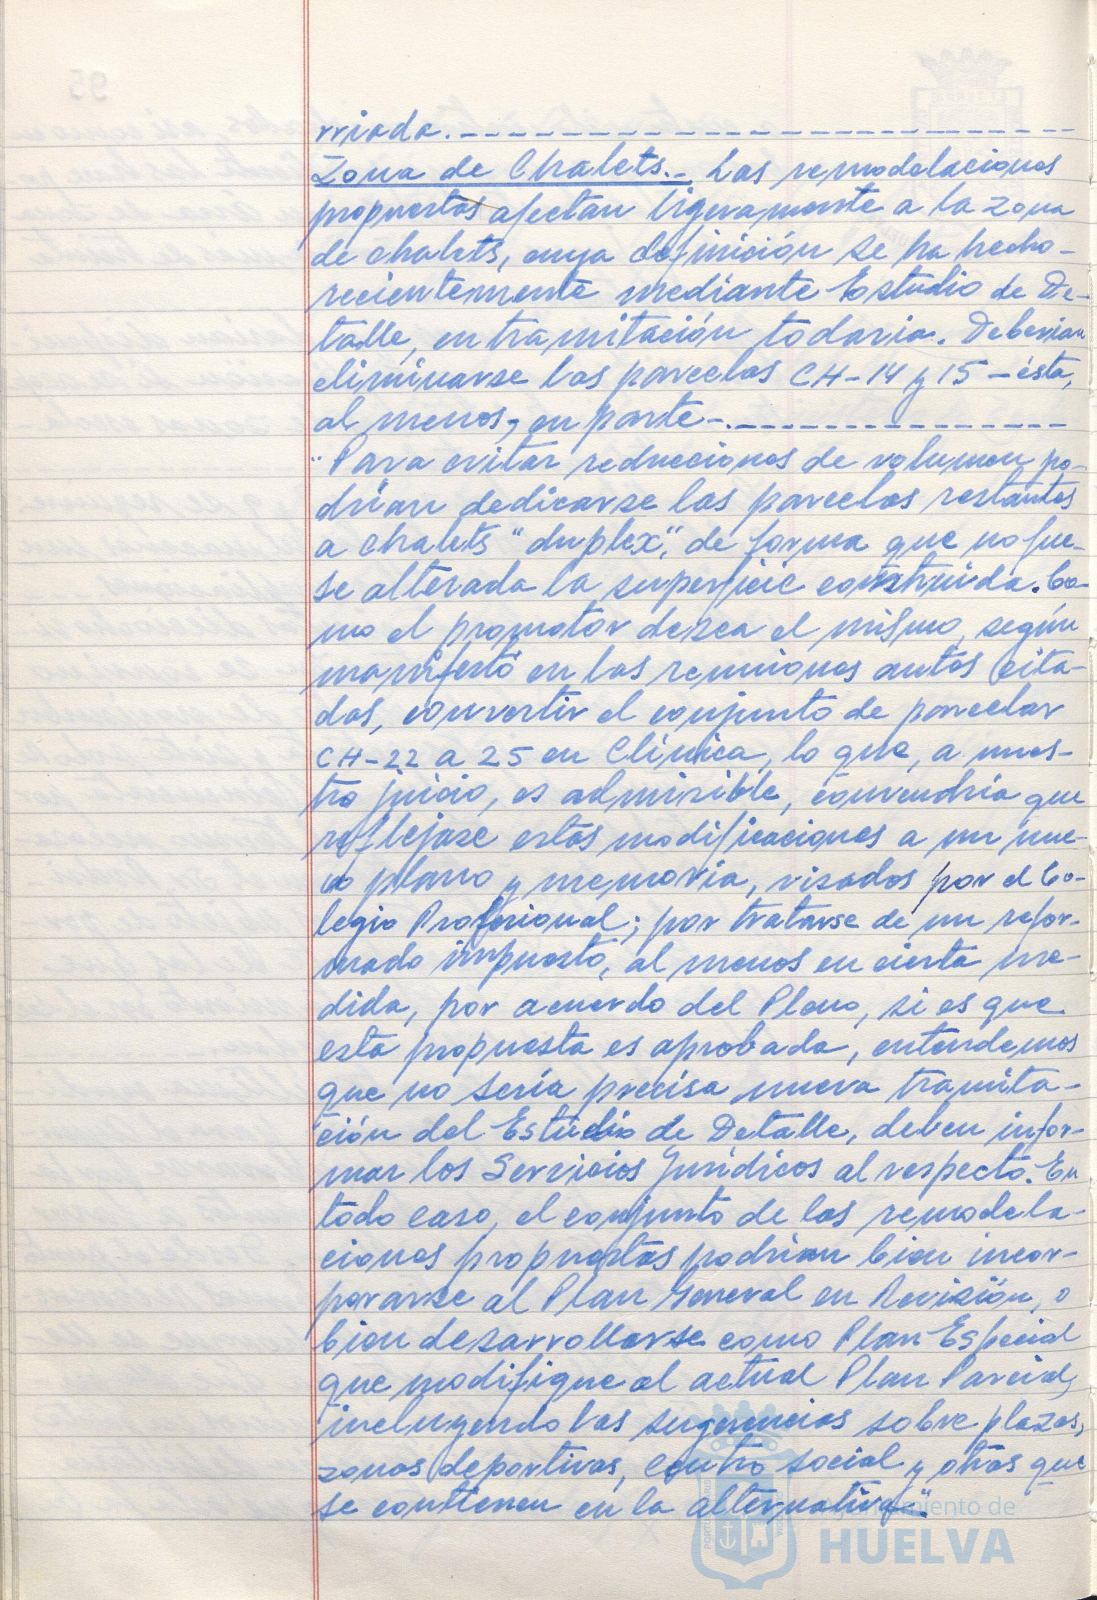 rriada.------------------------
Zona de Chalets.- Las remodelaciones
propuestas afectan ligeramente a la zona
de chalets, cuya definición se ha hecho-
recientemente mediante Estudio de De-
talle, en tramitación todavia. Deberian
eliminarse las parcelas CH-14 y 15 -ésta,
al menos, en parte-.----------------
"Para evitar reducciones de volumen po-
drian dedicarse las parcelas restantes
a chalets "duplex", de forma que no fue-
se alterada la superficie construida. Co-
mo el promotor desea el mismo, según
manifestó en las reuniones antes cita-
das, convertir el conjunto de parcelas
CH-22 a 25 en Clínica, lo que, a nues-
tro juicio, es admisible, convendría que
reflejase estas modificaciones a un nue-
vo plano y memoria, visados por el Co-
legio Profesional; por tratarse de un refor-
mado impuesto, al menos en cierta me-
dida, por acuerdo del Pleno, si es que
esta propuesta es aprobada, entendemos
que no sería precisa nueva tramita-
ción del Estudio de Detalle, deben infor-
mar los Servicios Jurídicos al respecto. En
todo caso, el conjunto de las remodela-
ciones propuestas podrian bien incor-
porarse al Plan General en Revisión, o
bien desarrollarse como Plan Especial
que modifique al actual Plan Parcial,
incluyendo las sugerencias sobre plazas,
zonas deportivas, centro social y otras que
se contienen en la alternativa".
Ayuntamiento de
HUELVA